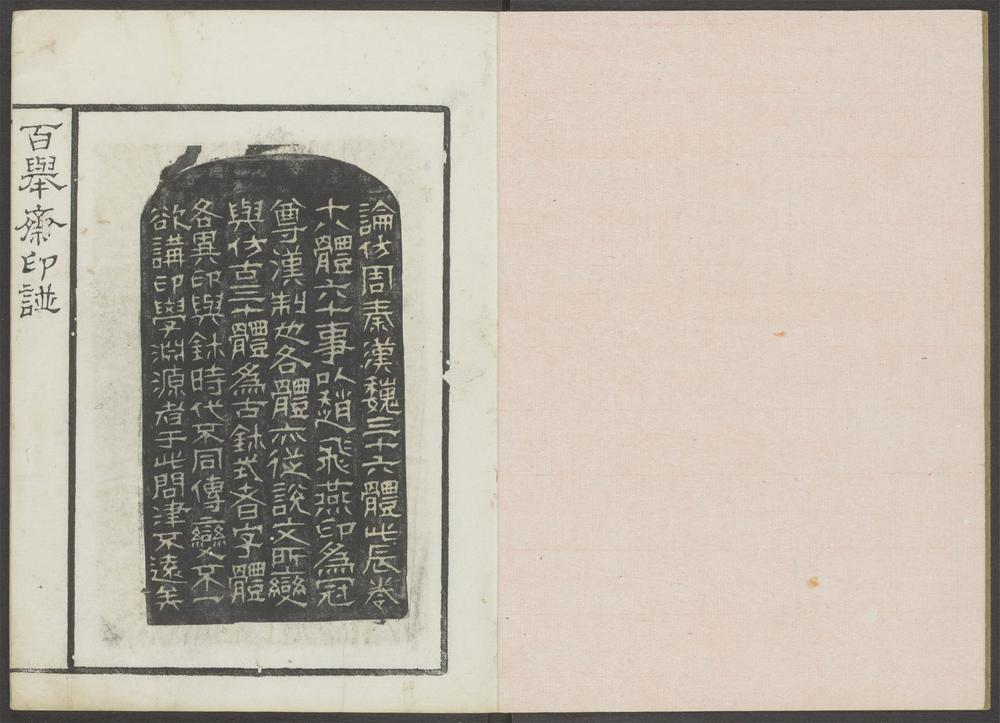 論仿周秦漢魏三十六體此辰卷
十八體六十事以趙飛燕印爲冠
尊漢制也各體亦從說文所變
與仿古三十體爲古鉥式者字體
各異印與鉥時代不同傳變不一
欲講印學淵源者于此問津不遠矣
百舉齋印譜